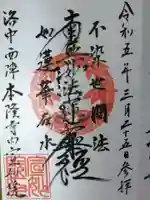 令和五年三月二十五日参拝
不染世間法
南無妙法蓮華経
如蓮華在水
洛中西陣本隆寺